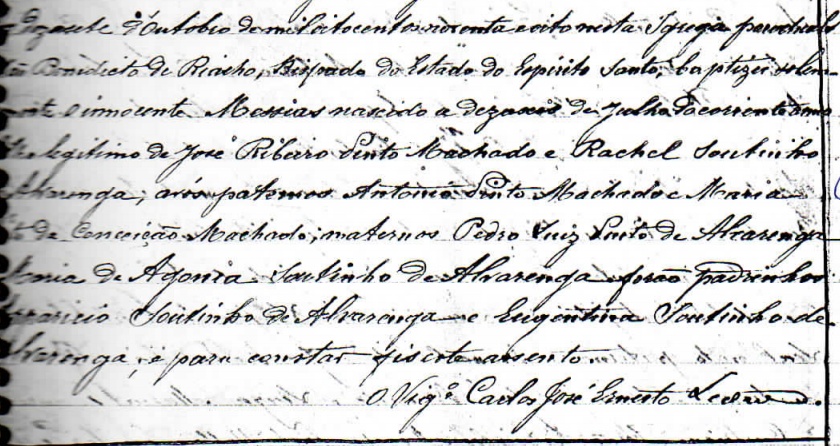 Dezasete d'Outubro de mil oitocentos noventa e oito nesta Igreja parochial
São Benedicto do Riacho, Bispado do Estado do Espirito Santo, baptizei solem
mente o innocente Messias nascido a dezaseis de Julho do corrente anno
legitimo de José Ribeiro Pinto Machado e Rachel Soutinho
Alvarenga; avós paternos Antonio Pinto Machado e Maria
da Conceição Machado; maternos Pedro Luiz Pinto de Alvarenga
Maria de Agonia Soutinho de Alvarenga forão padrinhos
Apparicio Soutinho de Alvarenga e Eugentina Soutinho de
Alvarenga, e para constar fis este assento.
O Vigº Carlos José Ernesto